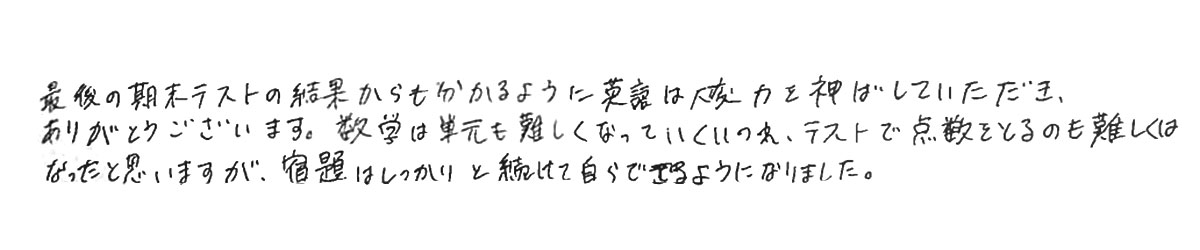 最後の期末テストの結果からも分かるように英語は大変力を伸ばしていただき、
ありがとうございます。数学は単元も難しくなっていくにつれ、テストで点数をとるのも難しくは
なったと思いますが、宿題はしっかりと続けて自らできるようになりました。